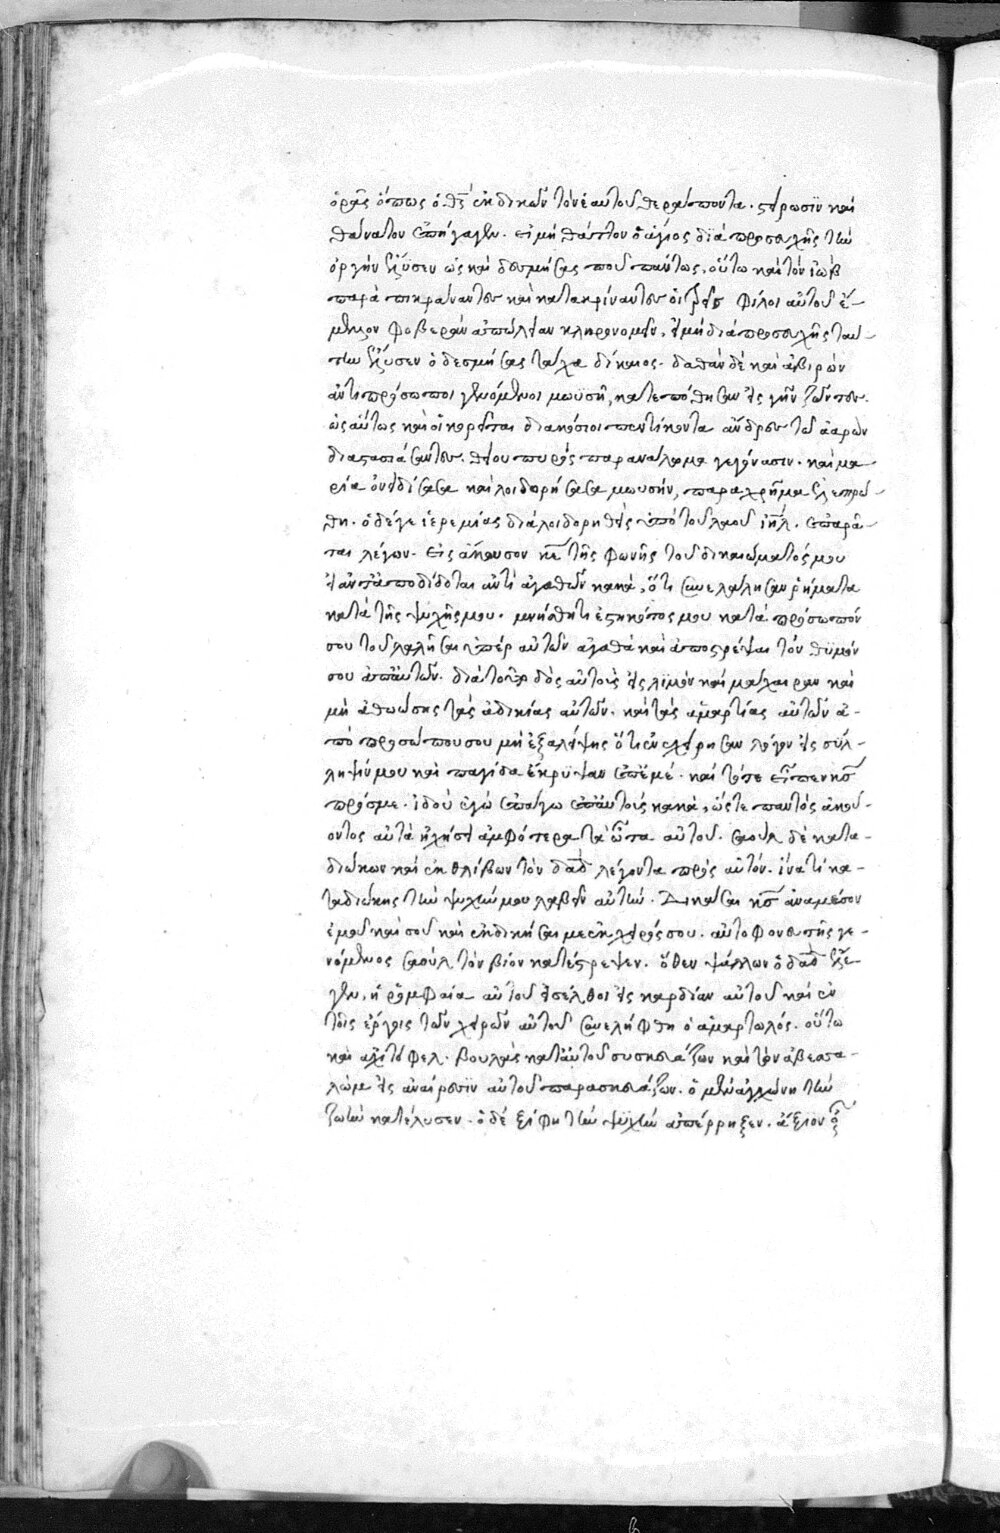 ὁρᾶς ὅπως ὁ θς̅ ἐκδικῶν τὸν ἑαυτοῦ θεράποντα. στείρωσιν καὶ
θάνατον ἐπήγαγεν. εἰ μὴ θᾶττον ὁ ἅγιος διὰ προσευχῆς τὴν
ὀργὴν ἔλυσεν ὡς καὶ δεσμήσας που πάντως, οὕτω καὶ τὸν ἰὼβ
παραπικράναντες καὶ κατακρίναντες οἱ φίλοι αὐτοῦ ἔ-
μελλον φοβερὰν ἀπώλειαν κληρονομεῖν, εἰ μὴ διὰ προσευχῆς ταύ-
την ἔλυσεν ὁ δεσμήσας τάχα δίκαιος. δαθὰν δὲ καὶ ἀβιρὼν
ἀντιπρόσωποι γενόμενοι μωϋσῆ, κατεπόθησαν εἰς γῆν ζῶντες.
ὡσαύτως καὶ οἱ κορῖται διακόσιοι πεντήκοντα ἄνδρες τῶ ἀαρὼν
διαστασιάσαντες. θείου πυρὸς παρανάλωμα γεγόνασιν. καὶ μα-
ρία ὀνειδίσασα καὶ λοιδορήσασα μωυσῆν, παραχρῆμα ἐλεπρώ-
θη. ὁ δέ γε ἱερεμίας διαλοιδορηθεὶς ὑπὸ τοῦ λαοῦ ιη̅λ. ἐπαρᾶ-
ται λέγων. εἰσάκουσον κε̅ τῆς φωνῆς τοῦ δικαιώματός μου
εἰ ἀνταποδίδοται ἀντὶ ἀγαθῶν κακά, ὅτι συνελάλησαν ῥήματα
κατὰ τῆς ψυχῆς μου. μνήσθητι ἑστηκότος μου κατὰ πρόσωπόν
σου τοῦ λαλῆσαι ὑπὲρ αὐτῶν ἀγαθὰ καὶ ἀποστρέψαι τὸν θυμόν
σου ἀπ' αὐτῶν. διὰ τοῦτο δὸς αὐτοὺς εἰς λιμὸν καὶ μάχαιραν καὶ
μὴ ἀθωώσης τὰς ἀδικίας αὐτῶν. καὶ τὰς ἁμαρτίας αὐτῶν ἀ-
πὸ προσώπου σου μὴ ἐξαλείψης ὅτι ἐνεχείρησαν λόγον εἰς σύλ-
ληψίν μου καὶ παγίδα ἔκρυψαν ἐπ' ἐμέ. καὶ τότε εἶπεν κς̅
πρός με. ἰδοὺ ἐγὼ ἐπάγω ἐπ' αὐτοὺς κακά, ὥστε παντὸς ἀκού-
οντος αὐτὰ ἠχήσει ἀμφότερα τὰ ὦτα αὐτοῦ. σαοὺλ δὲ κατα-
διώκων καὶ ἐκθλίβων τὸν δα̅δ λέγοντα πρὸς αὐτόν. ἱνατί κα-
ταδιώκης τὴν ψυχήν μου λαβεῖν αὐτήν. Δικάσαι κς̅ ἀναμέσον
ἐμοῦ καὶ σοῦ καὶ ἐκδικήσαι με ἐκ χειρός σου. αὐτοφονευτὴς γε-
νόμενος σαοὺλ τὸν βίον κατέστρεψεν. ὅθεν ψάλλων ὁ δα̅δ ἔλε-
γεν, ἡ ῥομφαία αὐτοῦ εἰσέλθοι εἰς καρδίαν αὐτοῦ καὶ ἐν
τοῖς ἔργοις τῶν χειρῶν αὐτοῦ συνελήφθη ὁ ἁμαρτωλός. οὕτω
καὶ ἀχιτόφελ. βουλὰς κατ' αὐτοῦ συσκευάζων καὶ τὸν ἀβεσα-
λὼμ εἰς ἀναίρεσιν αὐτοῦ παρασκευάζων. ὁ μὲν ἀγχόνη τὴν
ζωὴν κατέλυσεν. ὁ δὲ ξίφη τὴν ψυχὴν ἀπέρρηξεν. ἄξιον